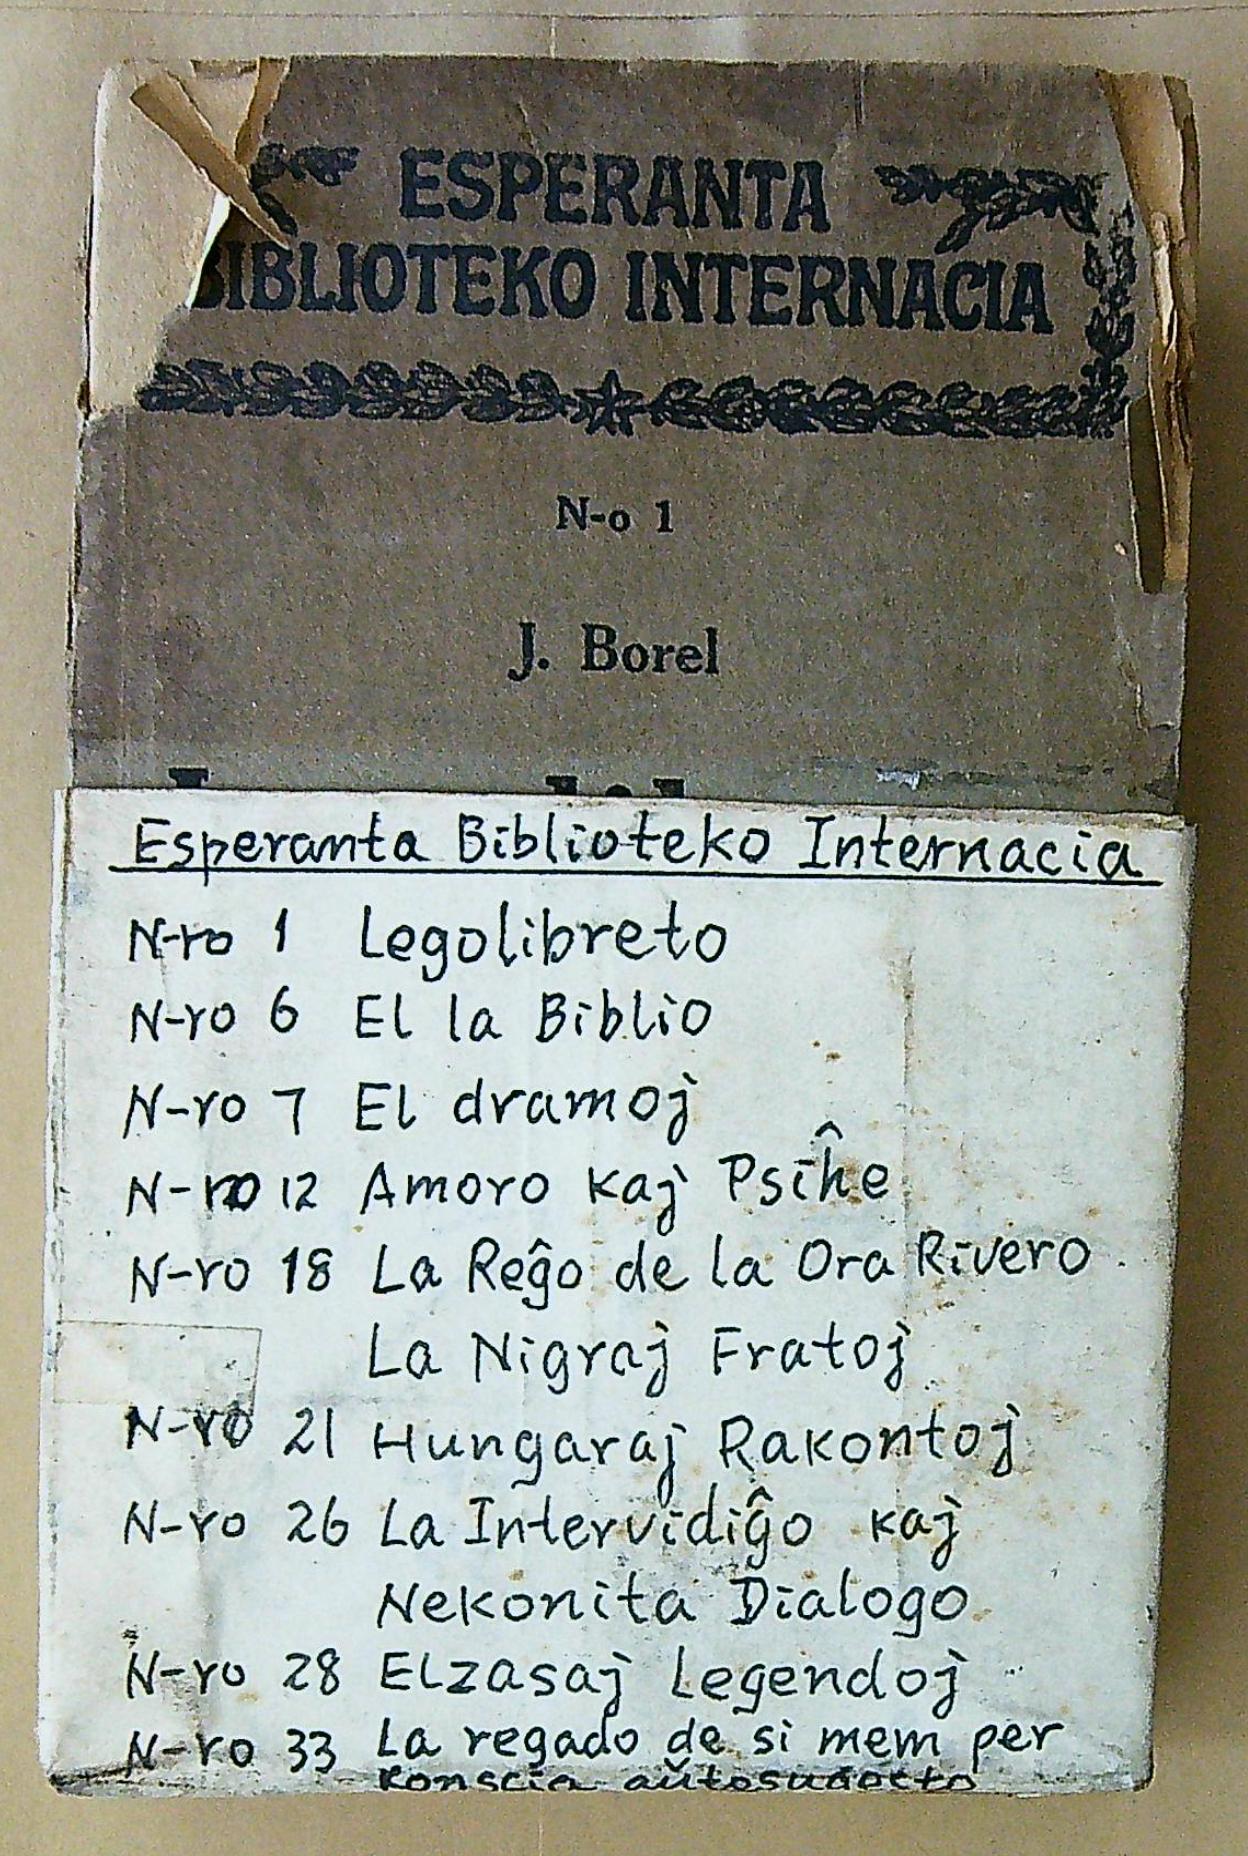 ESPERANTA
BIBLIOTEKO INTERNACIA
N-o 1
J. Borel
Esperanta Biblioteko Internacia
N-ro 1 Legolibreto
N-ro 6 El la Biblio
N-ro 7 El dramoj
N-ro 12 Amoro kaj Psiĥe
N-ro 18 La Reĝo de la Ora Rivero
La Nigraj Fratoj
N-ro 21 Hungaraj Rakontoj
N-ro 26 La Intervidiĝo kaj
Nekonita Dialogo
N-ro 28 Elzasaj Legendoj
N-ro 33 La regado de si mem per
konscia aŭtosugesto